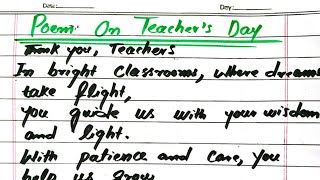 Date: Day:
Poem On Teacher's Day
Thank you, Teachers
In bright classrooms, where dreams
take flight,
You guide us with your wisdom
and light.
With patience and care, you
help us grow